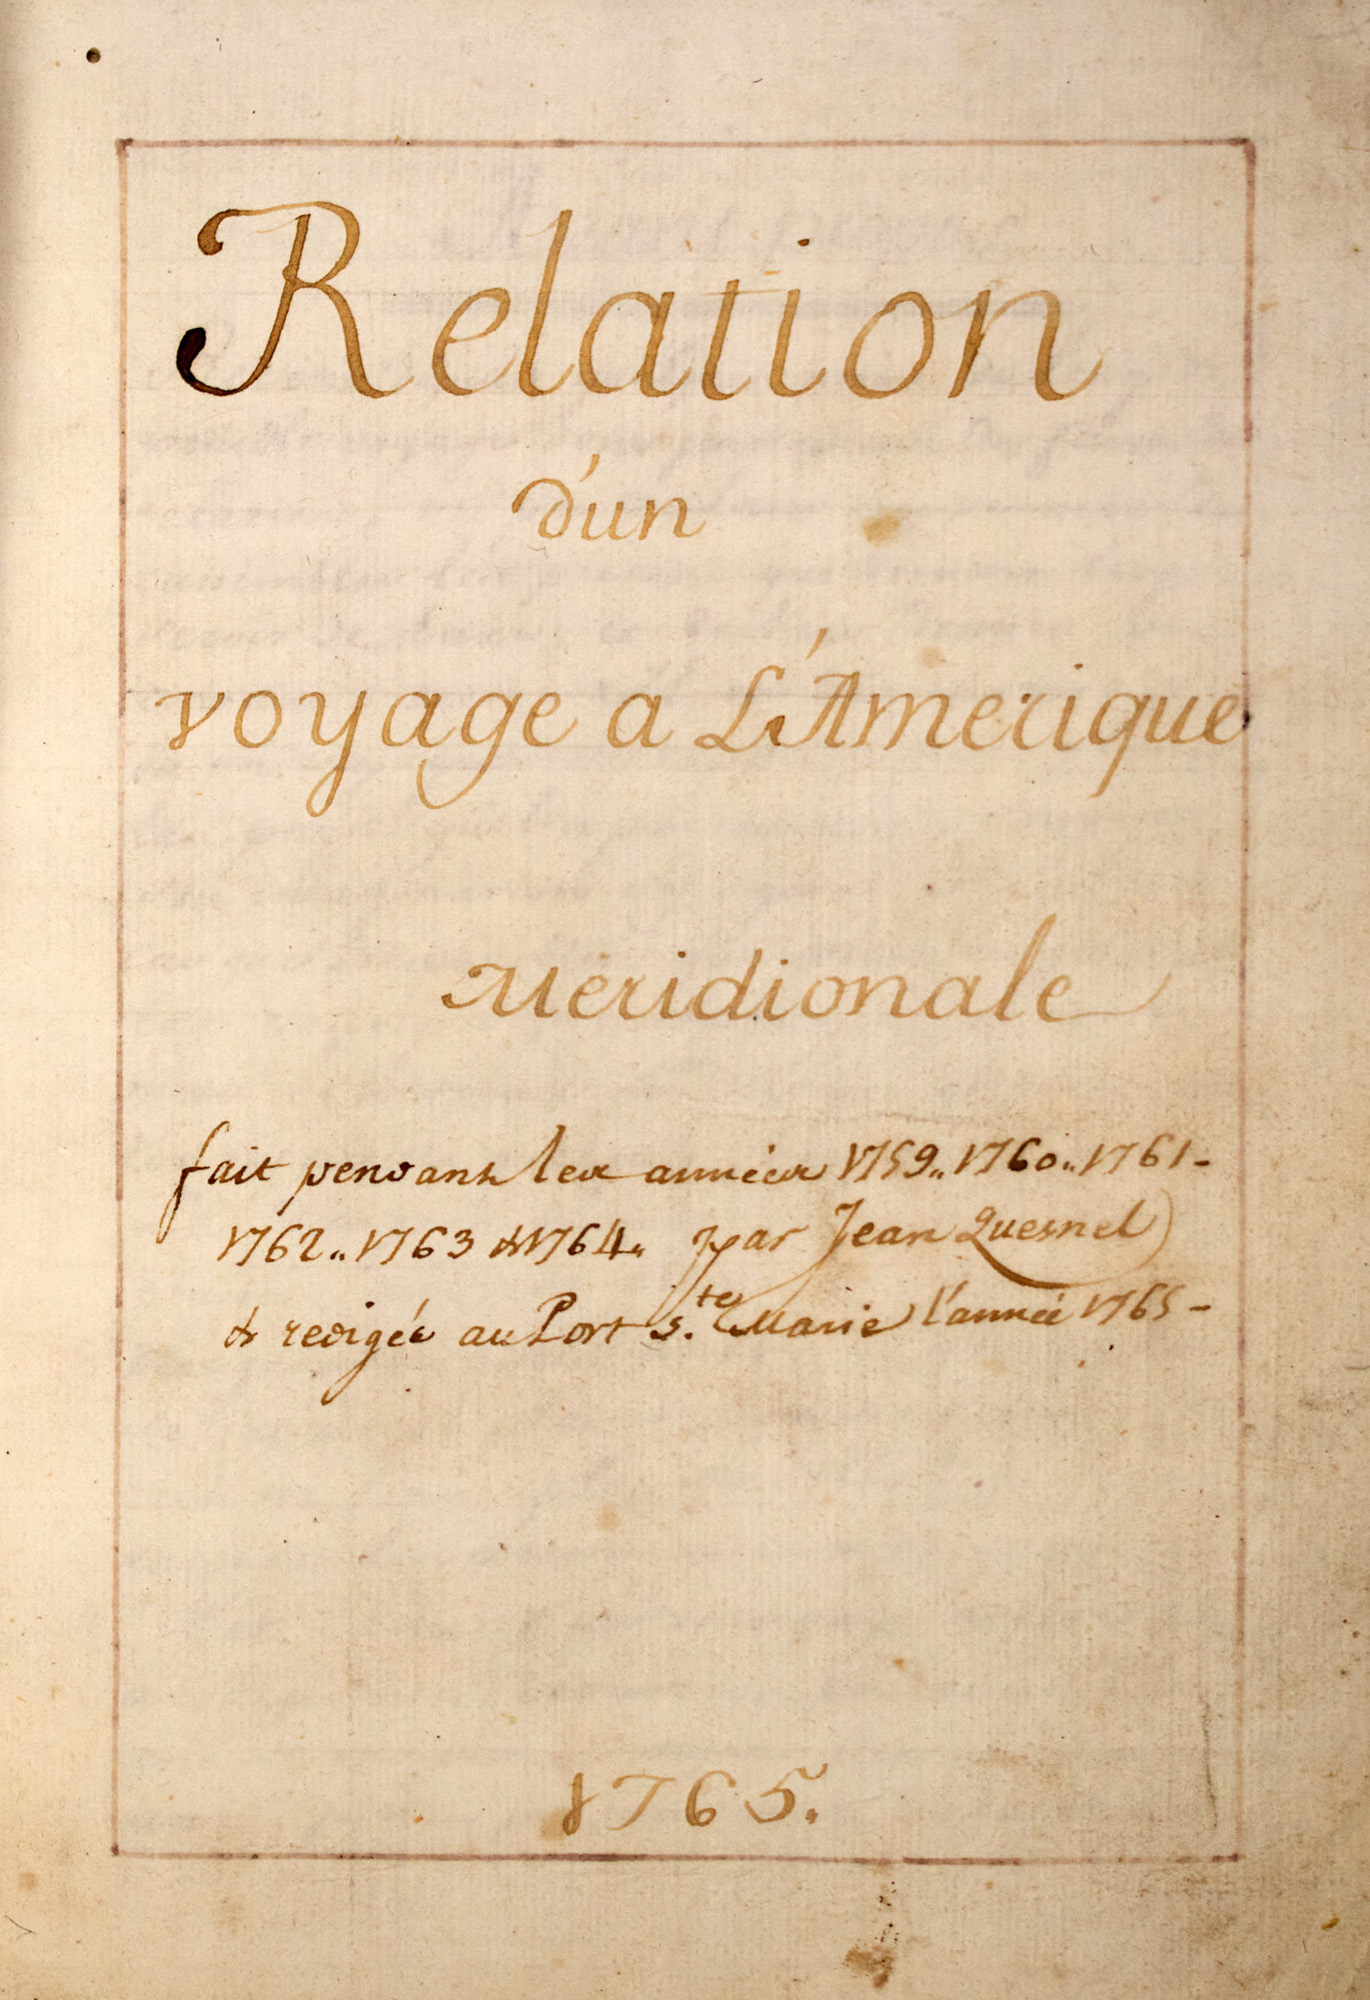 Relation
d'un
voyage a L'Amerique
Méridionale
fait pendant les années 1759.. 1760.. 1761-
1762.. 1763 & 1764.. par Jean Quesnel
& redigée au Port S.te Marie l'année 1765-
1765.